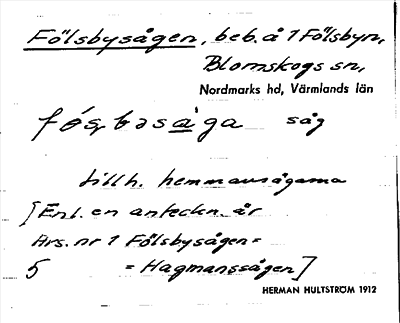 Fölsbysågen, beb. å 1 Fölsbyn,
Blomskogs sn,
Nordmarks hd, Värmlands län
såg
tillh. hemmansägarna
[Enl. en anteckn. är
Ars. nr 1 Fölsbysågen =
5 = Hagmanssågen]
HERMAN HULTSTRÖM 1912